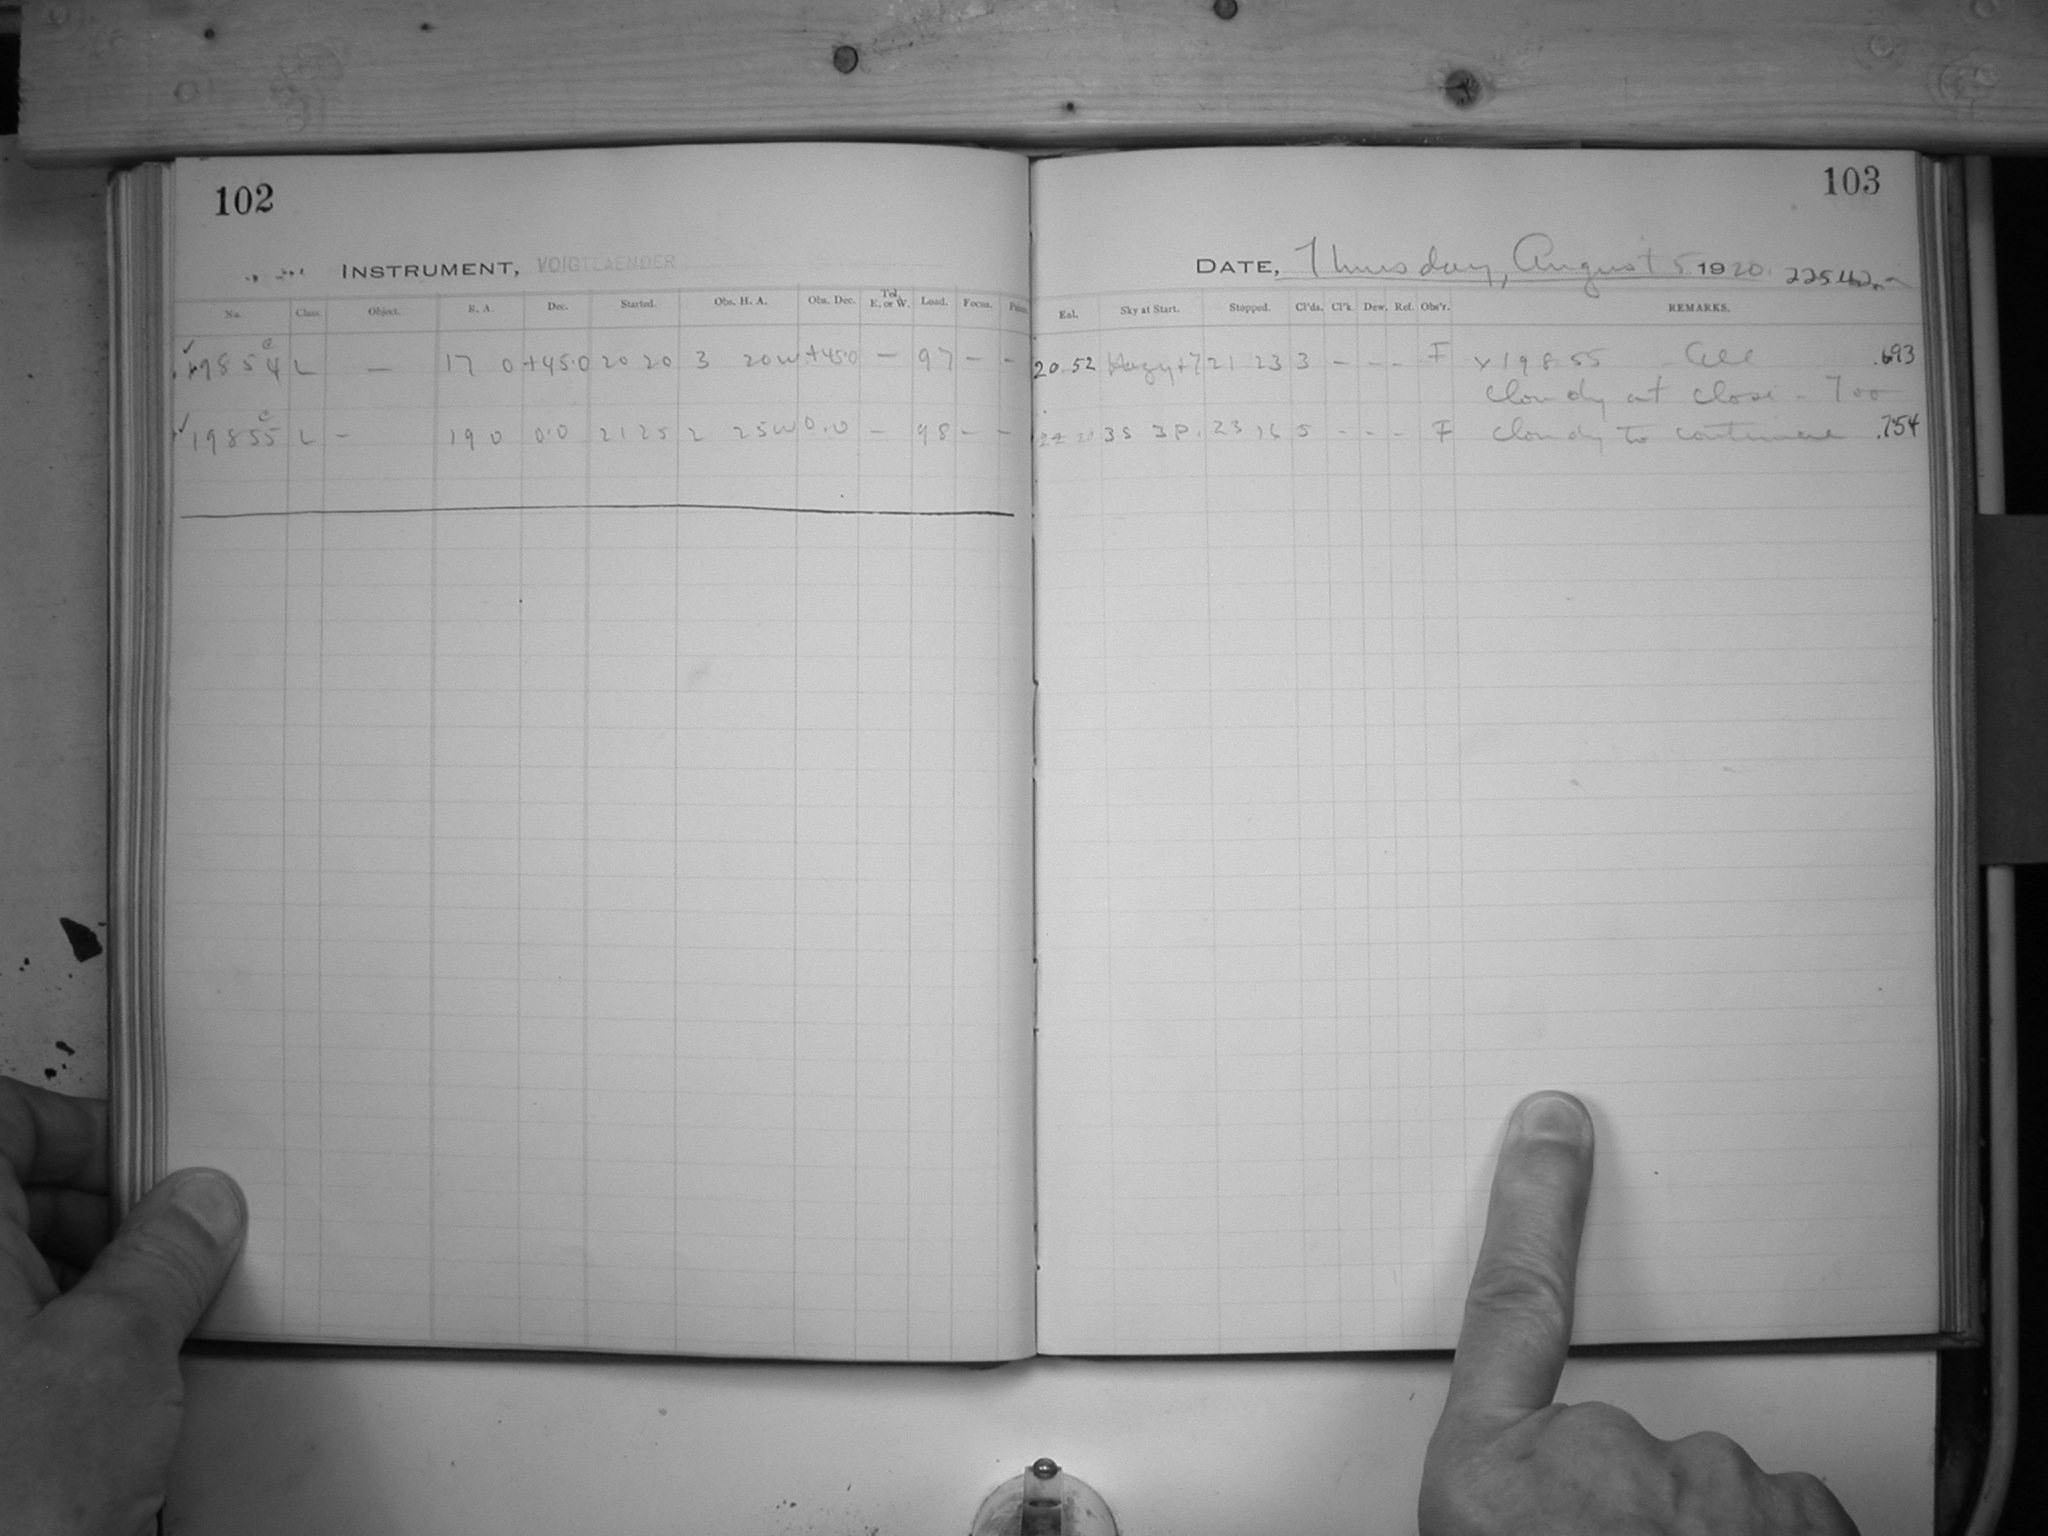 102
INSTRUMENT, VOIGTLAENDER
No. Class. Object. R. A. Dec. Started. Obs. H. A. Obs. Dec. Tel. E. or W. Load. Focus.
19854 c L — 17 0 +45.0 20 20 3 20W +45.0 — 97 — —
19855 c L — 19 0 0.0 21 25 2 25W 0.0 — 98 — —
103
DATE, Thursday, August 5 1920. 22542
Enl. Sky at Start. Stopped. Cl'ds. Cl'k. Dew. Ref. Obs'r. REMARKS.
20 52 Hazy +7 21 23 3 — - - F x 19855 All .693
cloudy at close - Too
22 20 3S 3P. 23 16 5 - - - F cloudy to continue .754